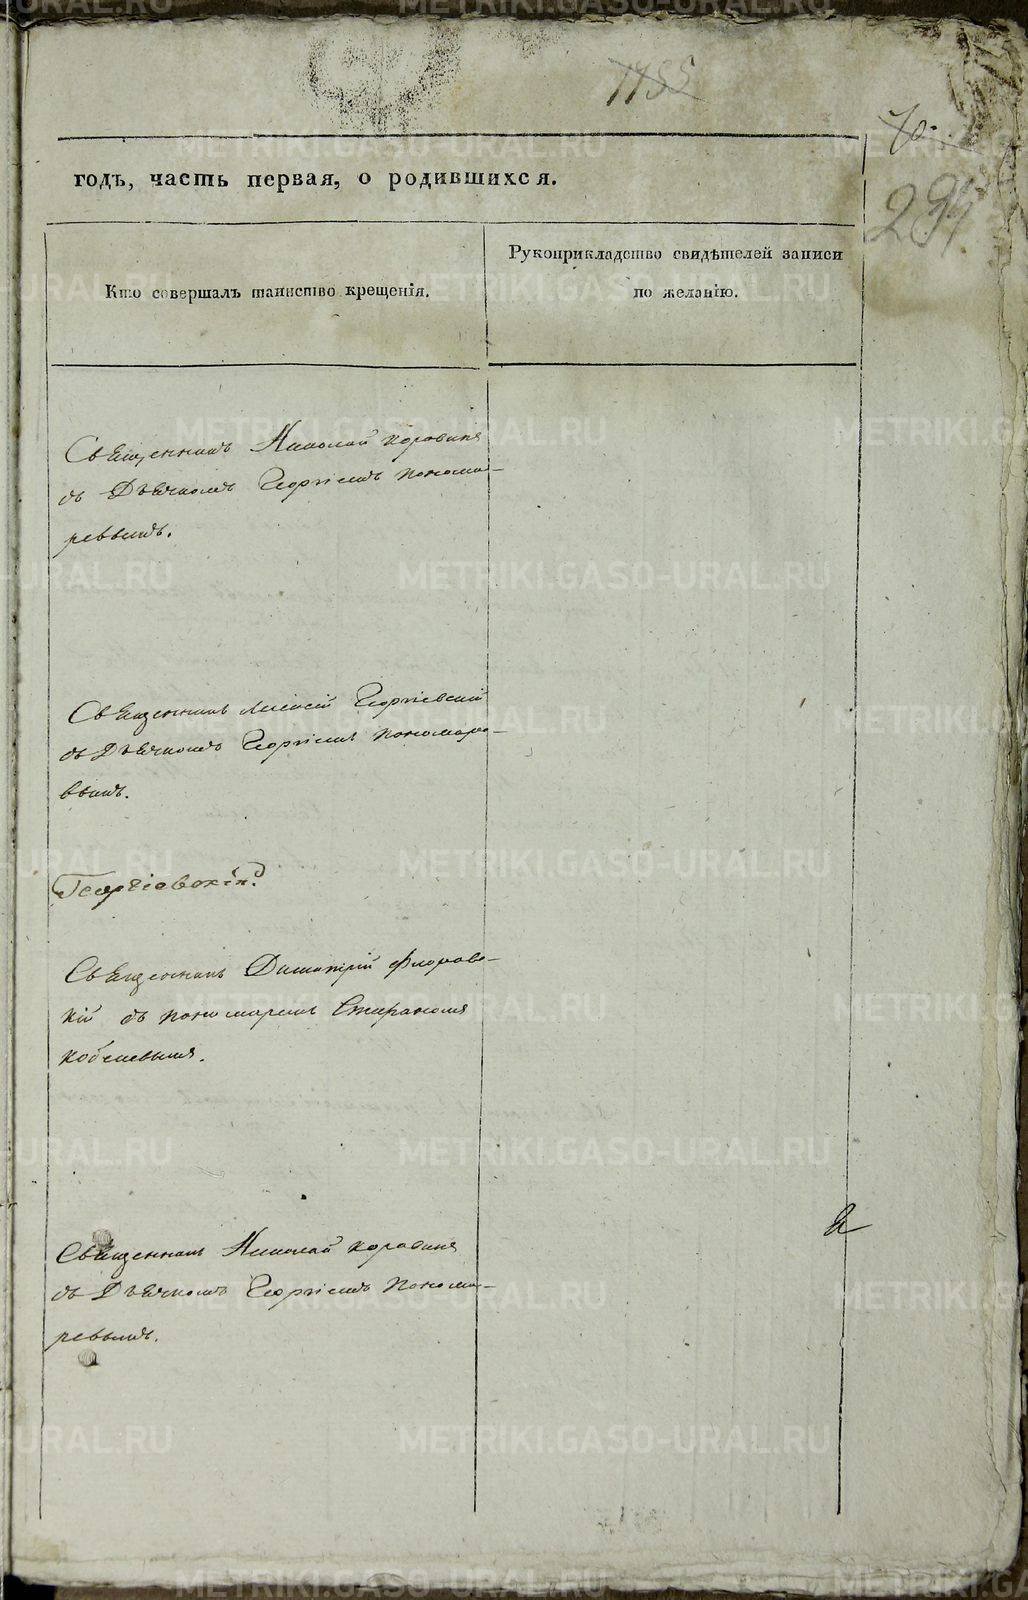 1155
70.
294.
годъ, часть первая, о родившихся.
Кто совершалъ таинство крещенія.
Рукоприкладство свидѣтелей записи
по желанію.
Священникъ Николай Коровинъ
съ Дьячкомъ Георгіемъ Понома-
ревымъ.
Священникъ Алексій Георгіевскій
съ Дьячкомъ Георгіемъ Пономаре-
вымъ.
Георгіевскій
Священникъ Димитрій Флоровс-
кій съ пономаремъ
Кобелевымъ.
Священникъ Николай Коровинъ
съ Дьячкомъ Георгіемъ Понома-
ревымъ.
METRIKI.GASO-URAL.RU